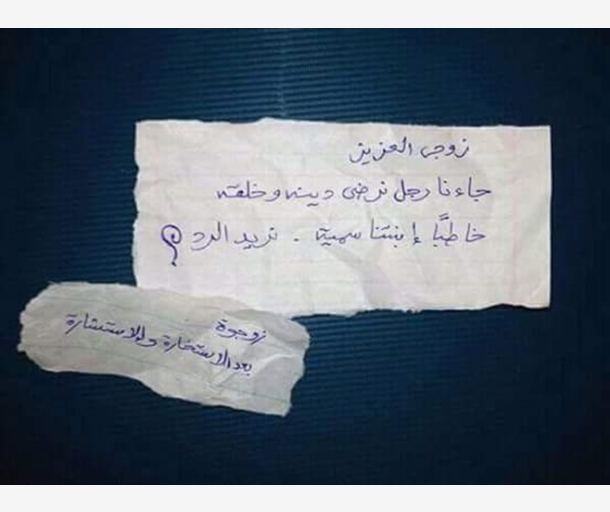 زوجي العزيز
جاءنا رجل نرضى دينه وخلقه
خاطبًا إبنتنا سمية . نريد الرد ؟
زوجوه
بعد الاستخارة والاستشارة